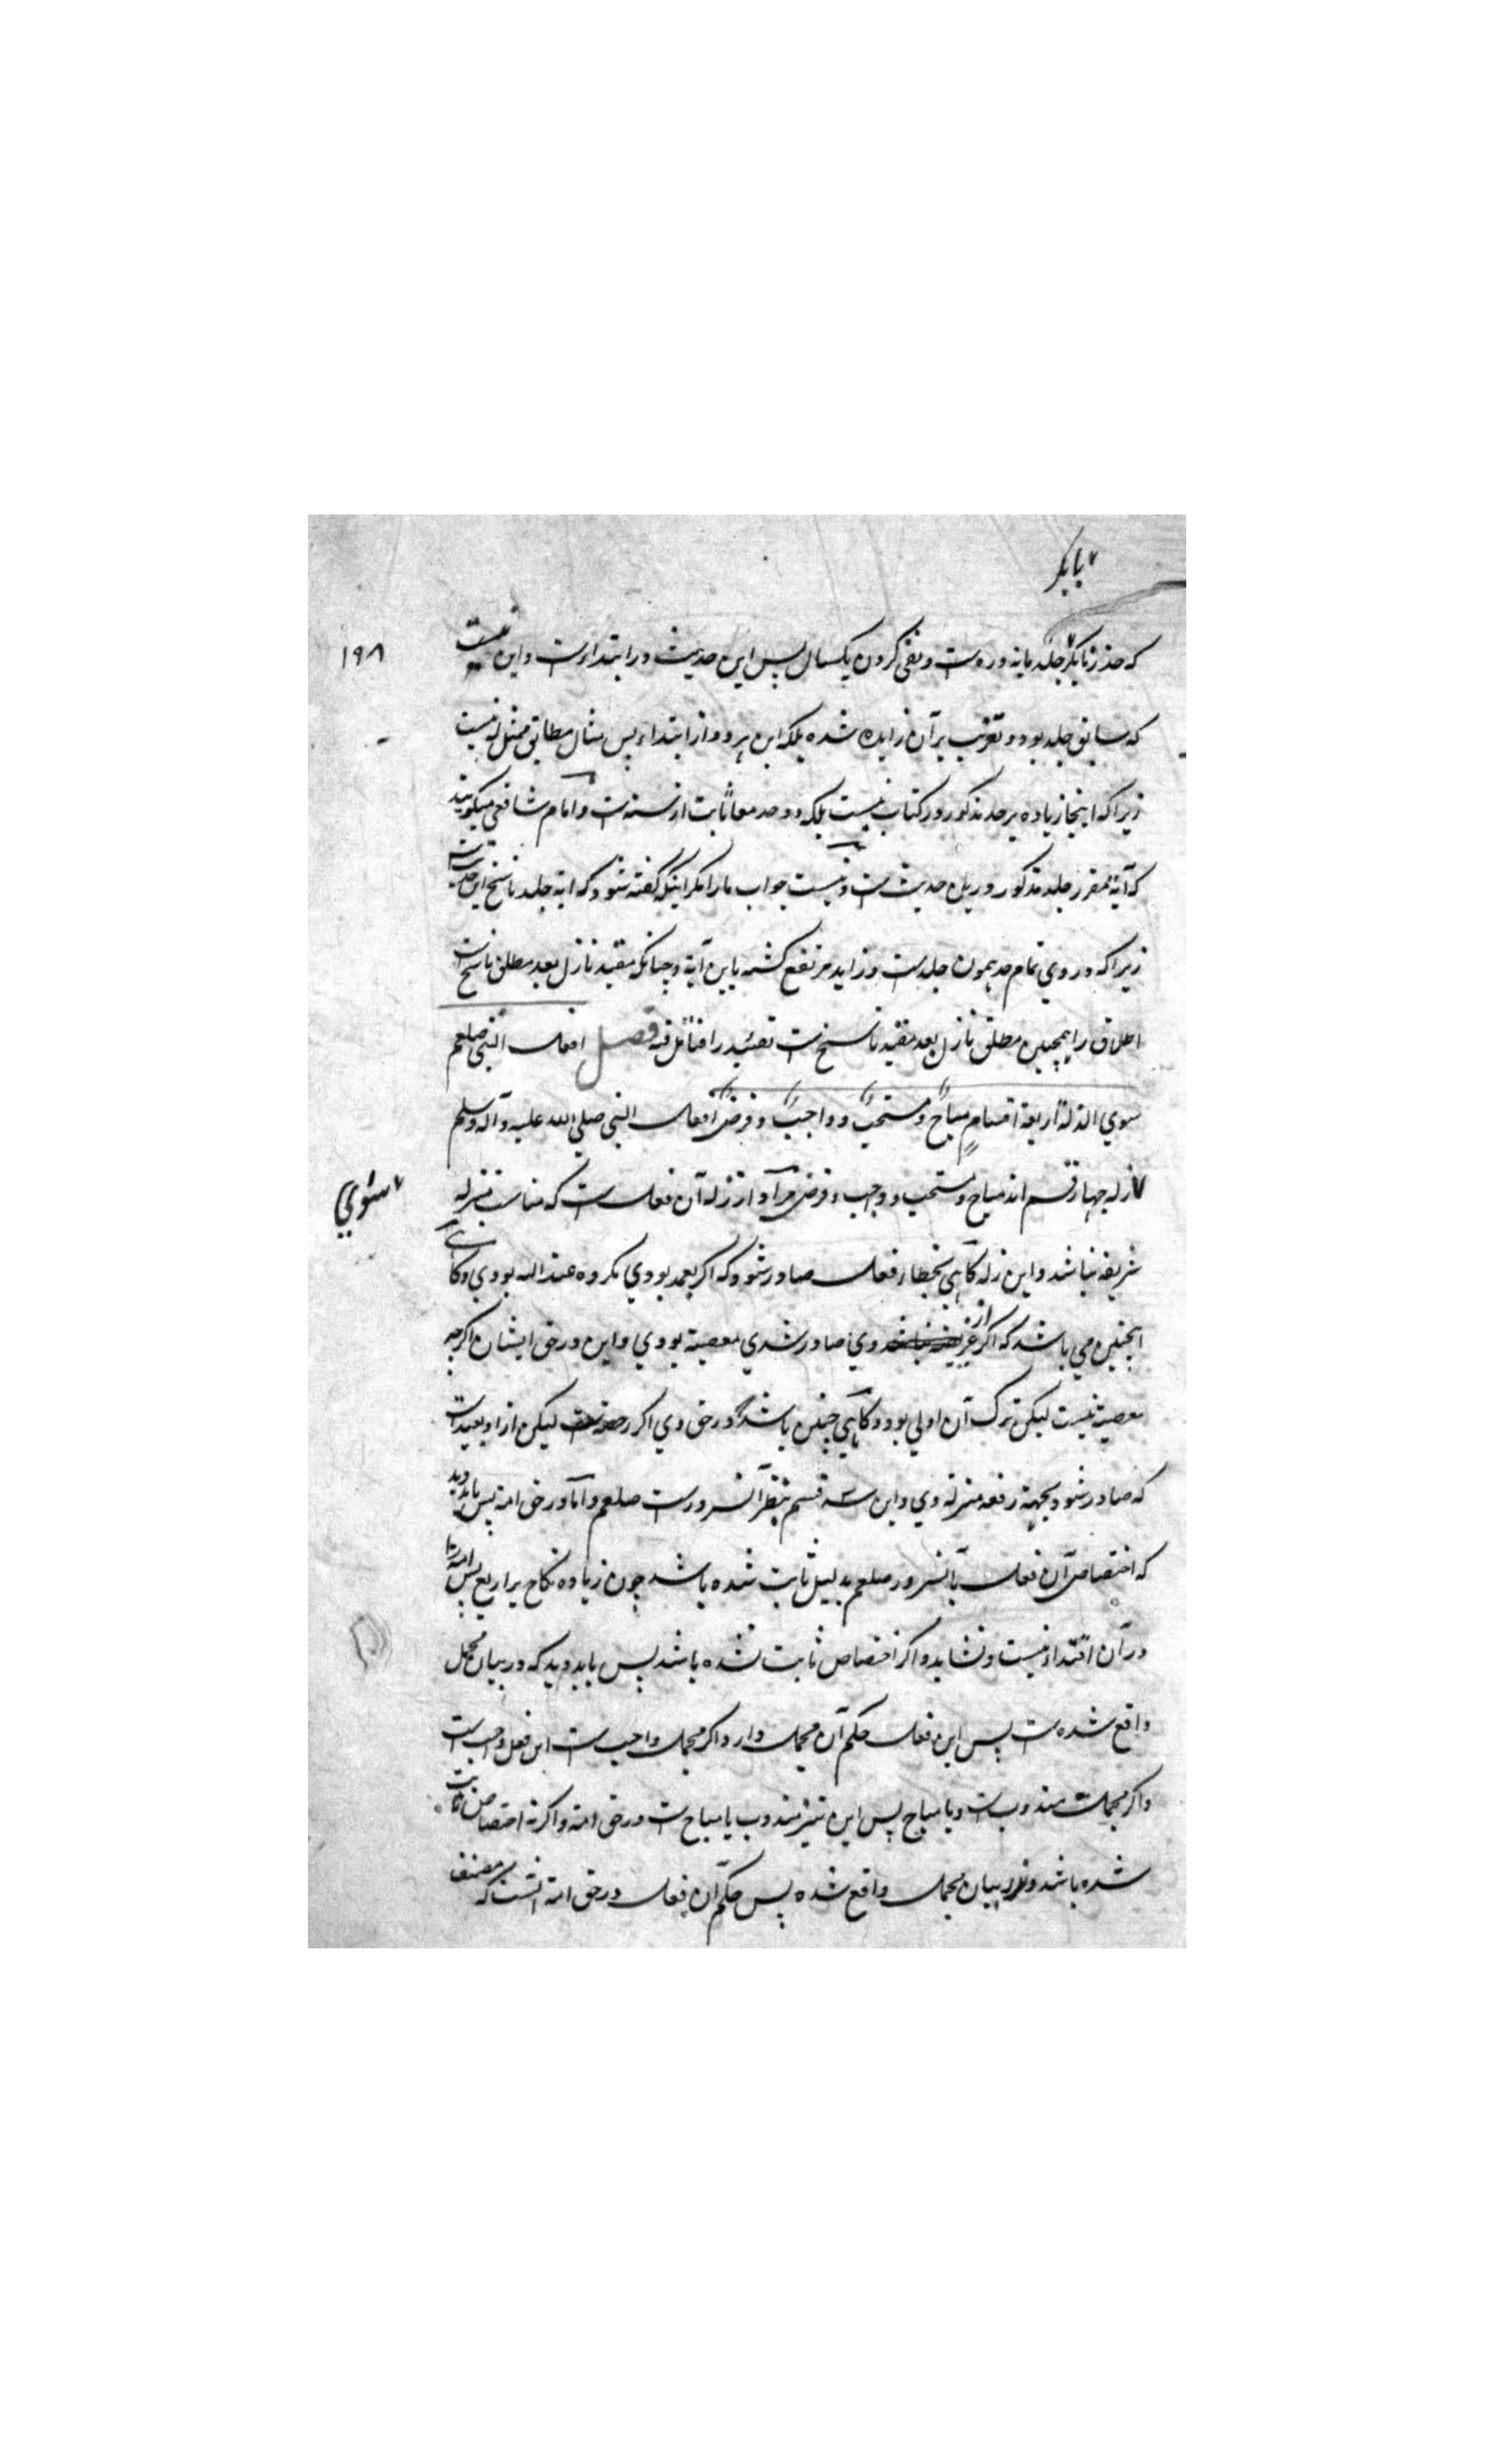 بابکر
۱۹۸
که حد زنا بکر جلد مایه و ره ست و نفی کردن یکسال پس این حدیث در ابتداءست و این نیست
که سابق جلد بود و تغریب بر آن زایده شده بلکه این هر دو از ابتداء پس مثال مطابق ممثل له نیست
زیرا که اینجا زیاده بر حد مذکور در کتاب نیست بلکه دو حد معا ثابت از سنة ست و امام شافعی میگویند
که آیة مقرر جلد مذکور حدیث ست و نیست جواب ما را مگر اینکه گفته شود که آیة جلد ناسخ این حدیث ست
زیرا که در وی تمام حد همون جلد ست و زاید مرتفع کشته باین آیة و چنانکه مقید نازل بعد مطلق ناسخ است
اطلاق را همچنین مطلق نازل بعد مقید ناسخ ست تقیید را فتامل فیه فصل افعال النبی صلعم
سوی الزلة اربعة اقسام مباح و مستحب و واجب و فرض افعال النبی صلی الله علیه وآله وسلم
زله چهار قسم اند مباح و مستحب و واجب و فرض مراد از زله آن فعل ست که مناسب منزله
سوی
شریفه نباشد و این زله کاهی بخطاء فعل صادر شود که اکر بعمد بودی مکروه عند الله بودی و کاهی
اینچنین می باشد که اکر از غیر وی صادر شدی معصیة بودی و این در حق ایشان اکرچه
معصیة نیست لیکن ترک آن اولی بود و کاهی چنین باشد که در حق وی اکر لیکن ازو بعید است
که صادر شود بجهة رفعه منزله وی و این سه قسم بنظر آنسرور ست صلعم و اما در حق امة پس باید دید
که اختصاص آن فعل بآنسرور صلعم بدلیل ثابت شده باشد چون زیاده نکاح بر اربع پس امة را
در آن اقتداء نیست و نشاید و اکر اختصاص ثابت نشده باشد پس باید دید که در بیان مجمل
واقع شده ست پس این فعل حکم آن مجمل دارد اکر مجمل واجب ست این فعل واجب ست
و اکر مجمل مندوب ست و یا مباح پس این نیز مندوب یا مباح ست در حق امة و اکر نه اختصاص ثابت
شده باشد و نه در بیان مجمل واقع شده پس حکم آن فعل در حق امة آنست که مصنف